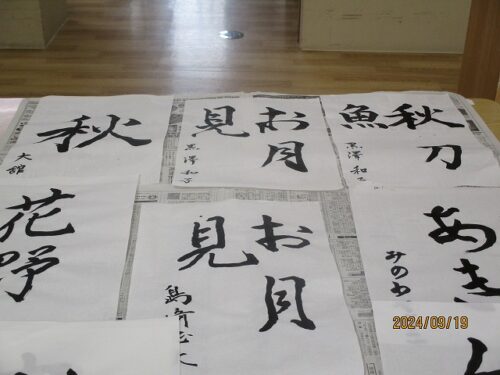 秋
大舘
お月
見
黒澤 和子
秋刀
魚
黒澤 和子
花野
お月
見
あき
みのわ
2024/09/19